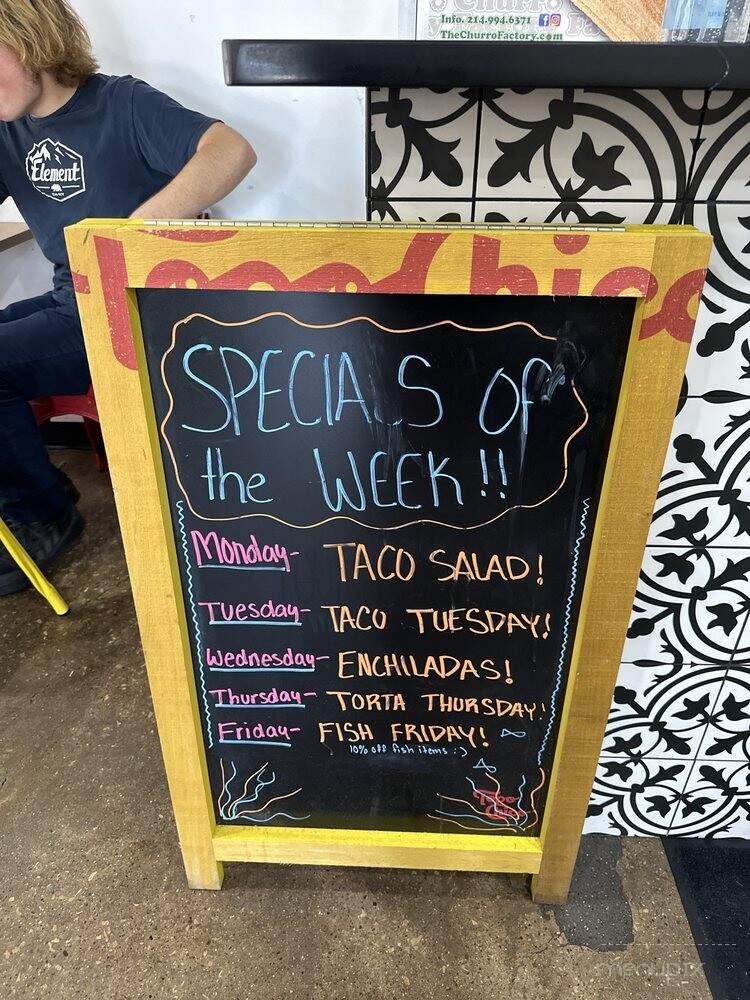 Info. 214.994.6371
TheChurroFactory.com
Element
Taco Chico
SPECIALS OF
the WEEK!!
Monday- TACO SALAD!
Tuesday- TACO TUESDAY!
Wednesday- ENCHILADAS!
Thursday- TORTA THURSDAY!
Friday- FISH FRIDAY!
10% off fish items :)
Taco
menupix